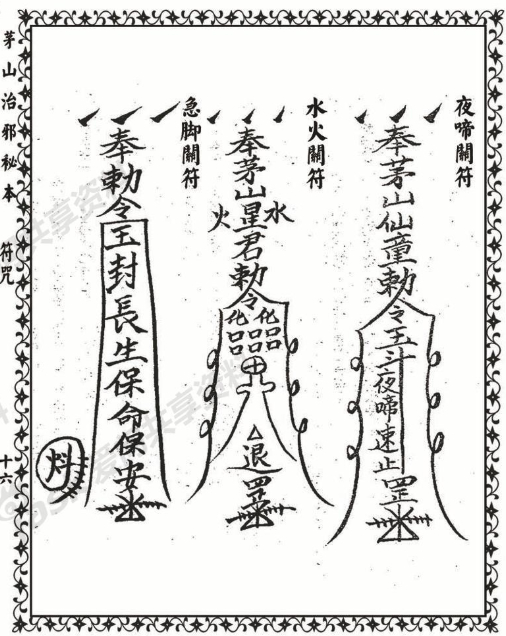 夜啼關符
奉茅山仙童勅令玉斗夜啼速止罡
水火關符
奉茅山星君勅令
水
火
化化
退罡
急脚關符
奉勅令玉封長生保命保安
茅山治邪秘本
符咒
十六